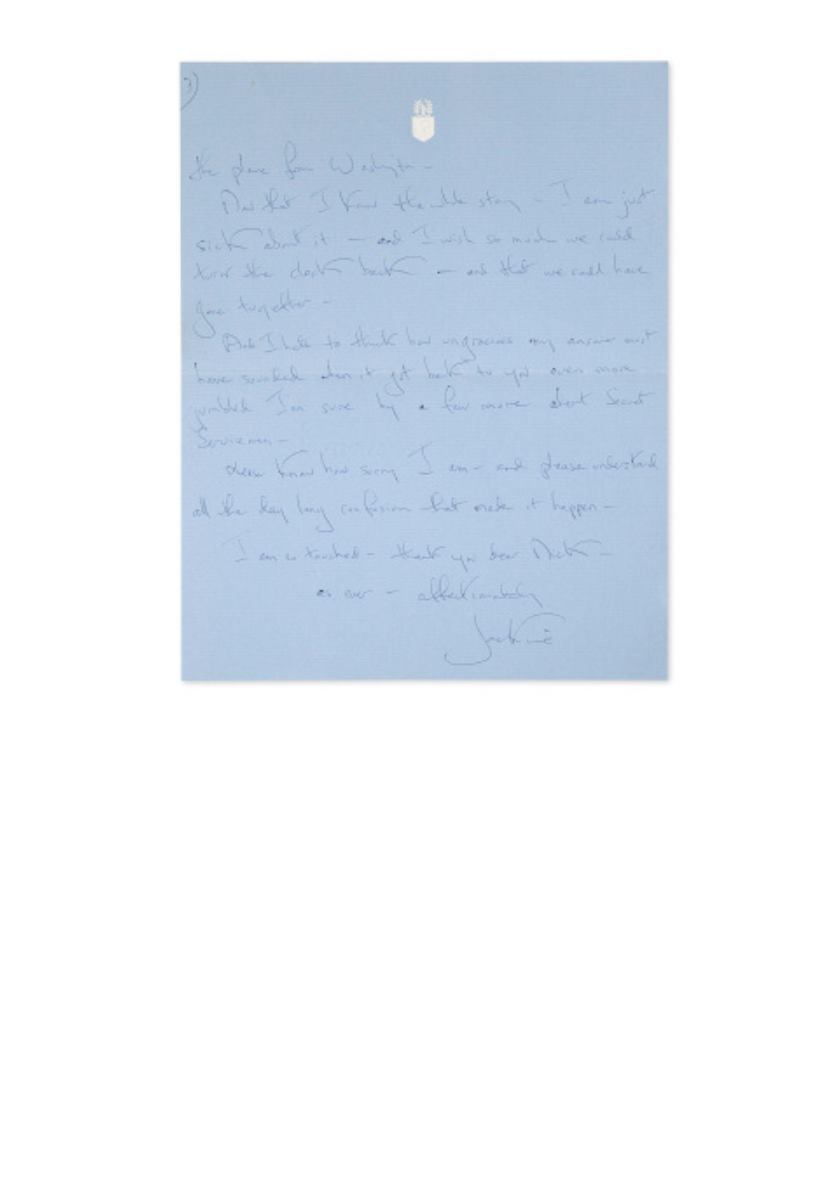 3)
the plane from Washington –
Now that I know the whole story – I am just
sick about it – and I wish so much we could
turn the clock back – and that we could have
gone together –
And I hate to think how ungracious my answer must
have sounded when it got back to you even more
jumbled I'm sure by a few more about Secret
Servicemen –
Please know how sorry I am – and please understand
all the day long confusion that made it happen –
I am so touched – thank you dear
as ever – affectionately
Jackie